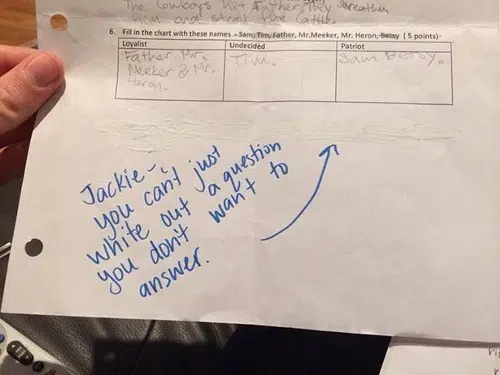 The Cowboys hit Father, They threaten
him and steal the Cattle.
6. Fill in the chart with these names – Sam, Tim, Father, Mr.Meeker, Mr. Heron, Betsy ( 5 points)
Loyalist Undecided Patriot
Father Mr. Tim. Sam Betsy.
Meeker & Mr.
Heron.
Jackie-
you can't just
white out a question
you don't want to
answer.